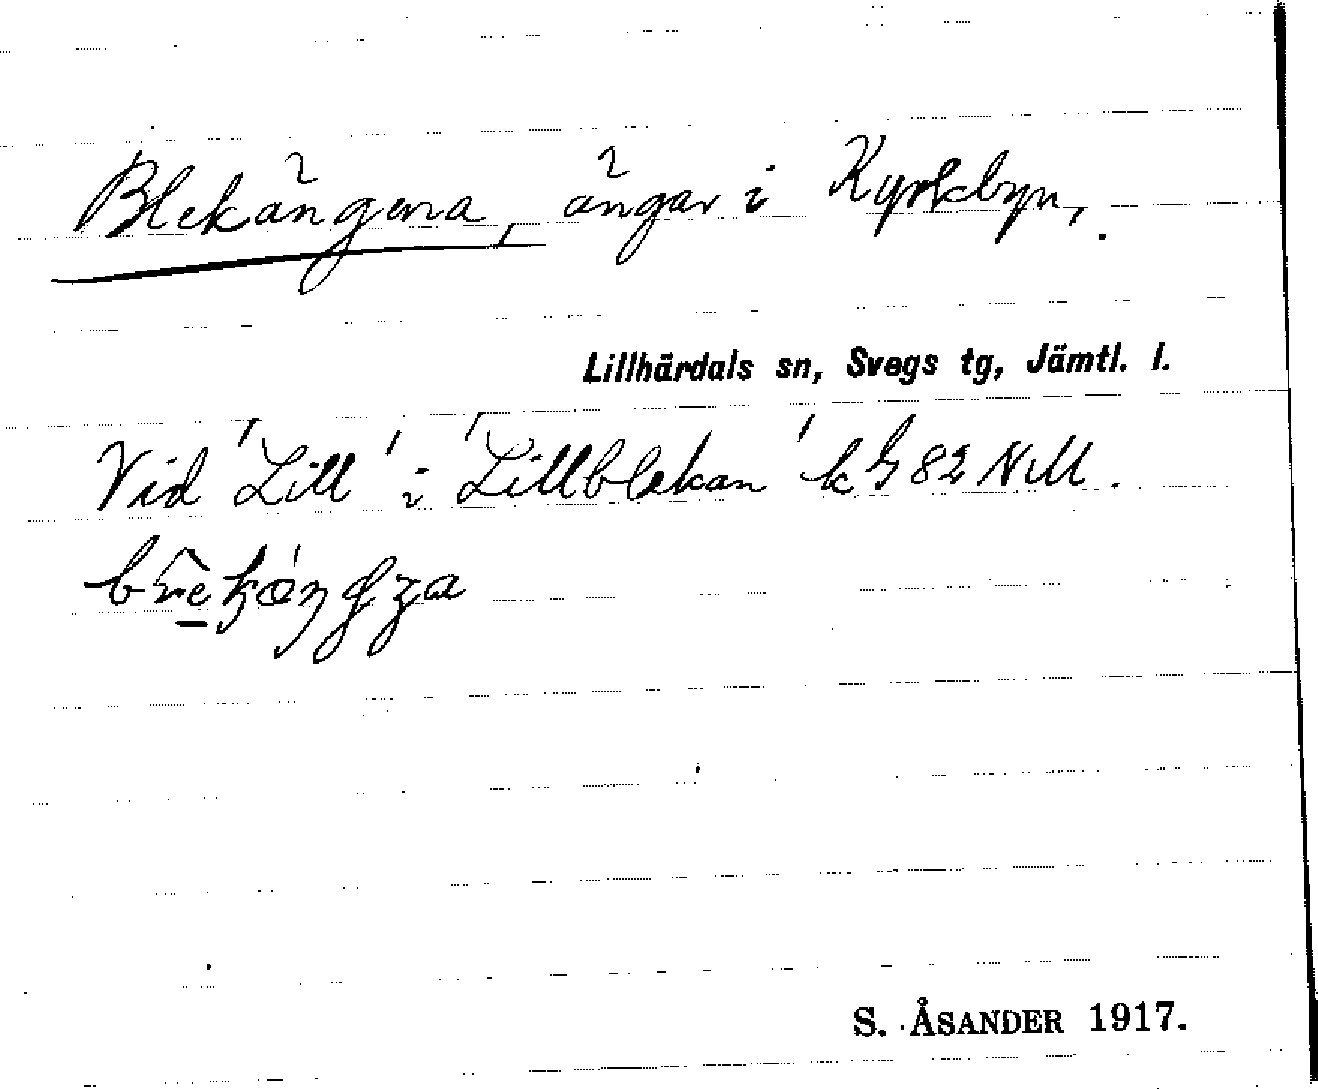 Blekängarna, ängar i Kyrkbyn,
Lillhärdals sn, Svegs tg, Jämtl. l.
Vid 'Lill' i 'Lillblekan' k G 82 NM.
S. ÅSANDER 1917.